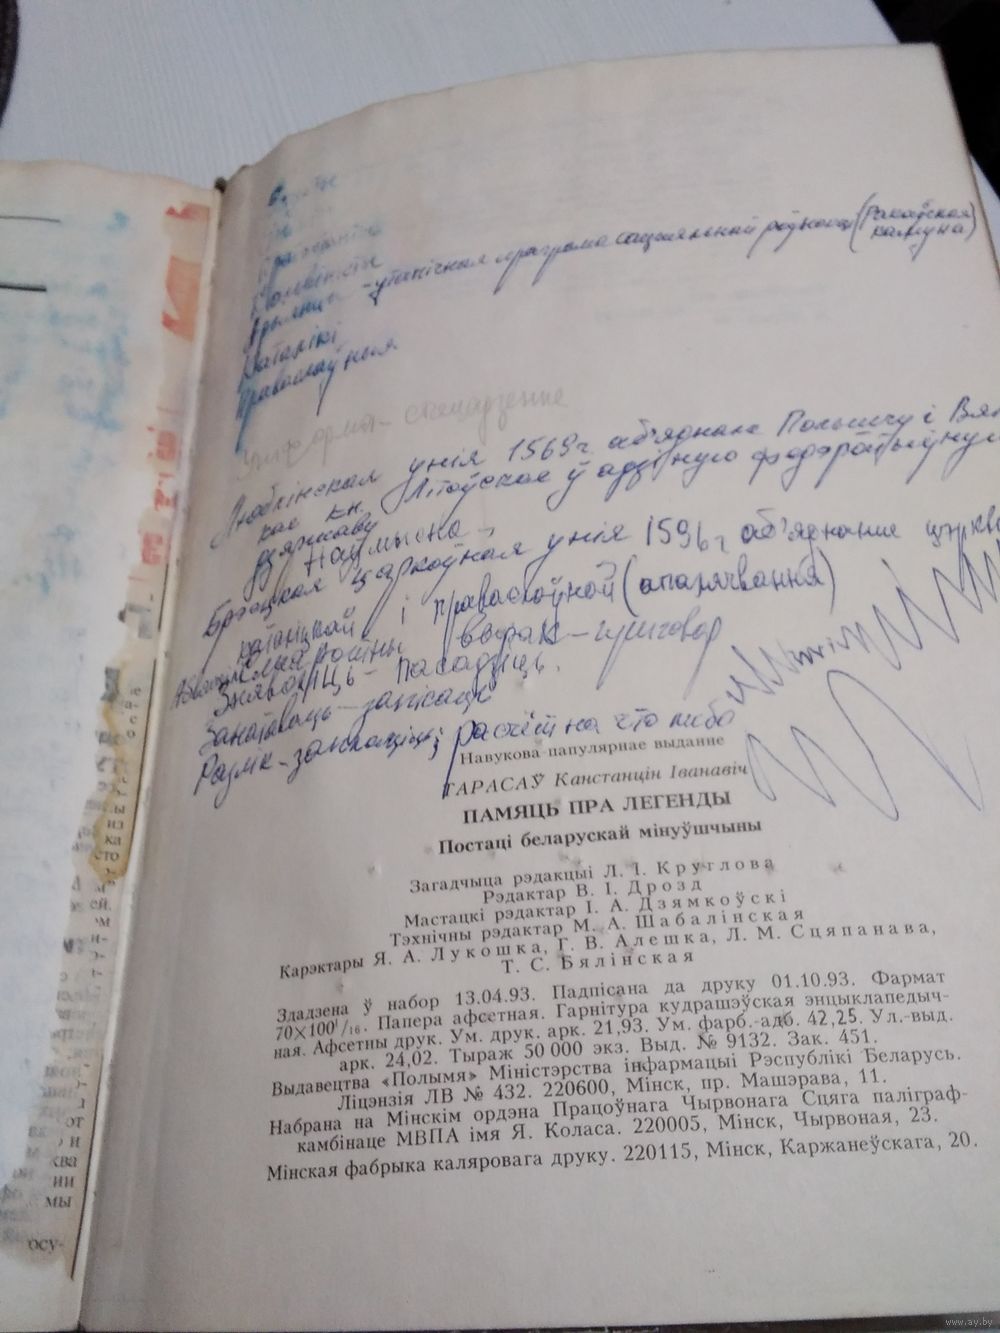 Кальвіністы
Арыяне - утапічная праграма сацыяльнай роўнасці (Ракаўская
камуна)
Каталікі
Праваслаўныя
уніформа - спецадзенне
Люблінская унія 1569г. аб'яднала Польшчу і Вял
кае кн. Літоўскае ў адзіную федэратыўную
дзяржаву
Наўмысна -
Брэсцкая царкоўная унія 1596г аб'яднанне цэрквы
каталіцкай і праваслаўнай (апалячвання)
вырак - приговор
Зняволіць - пасадзіць.
Занатаваць - запісаць
Разлік - расчёт на что либо
Навукова-папулярнае выданне
ТАРАСАЎ Канстанцін Іванавіч
ПАМЯЦЬ ПРА ЛЕГЕНДЫ
Постаці беларускай мінуўшчыны
Загадчыца рэдакцыі Л. І. Круглова
Рэдактар В. І. Дрозд
Мастацкі рэдактар І. А. Дзямкоўскі
Тэхнічны рэдактар М. А. Шабалінская
Карэктары Я. А. Лукошка, Г. В. Алешка, Л. М. Сцяпанава,
Т. С. Бялінская
Здадзена ў набор 13.04.93. Падпісана да друку 01.10.93. Фармат
70×100¹/₁₆. Папера афсетная. Гарнітура кудрашэўская энцыклапедыч-
ная. Афсетны друк. Ум. друк. арк. 21,93. Ум. фарб.-адб. 42,25. Ул.-выд.
арк. 24,02. Тыраж 50 000 экз. Выд. № 9132. Зак. 451.
Выдавецтва «Полымя» Міністэрства інфармацыі Рэспублікі Беларусь.
Ліцэнзія ЛВ № 432. 220600, Мінск, пр. Машэрава, 11.
Набрана на Мінскім ордэна Працоўнага Чырвонага Сцяга паліграф-
камбінаце МВПА імя Я. Коласа. 220005, Мінск, Чырвоная, 23.
Мінская фабрыка каляровага друку. 220115, Мінск, Каржанеўскага, 20.
www.ay.by